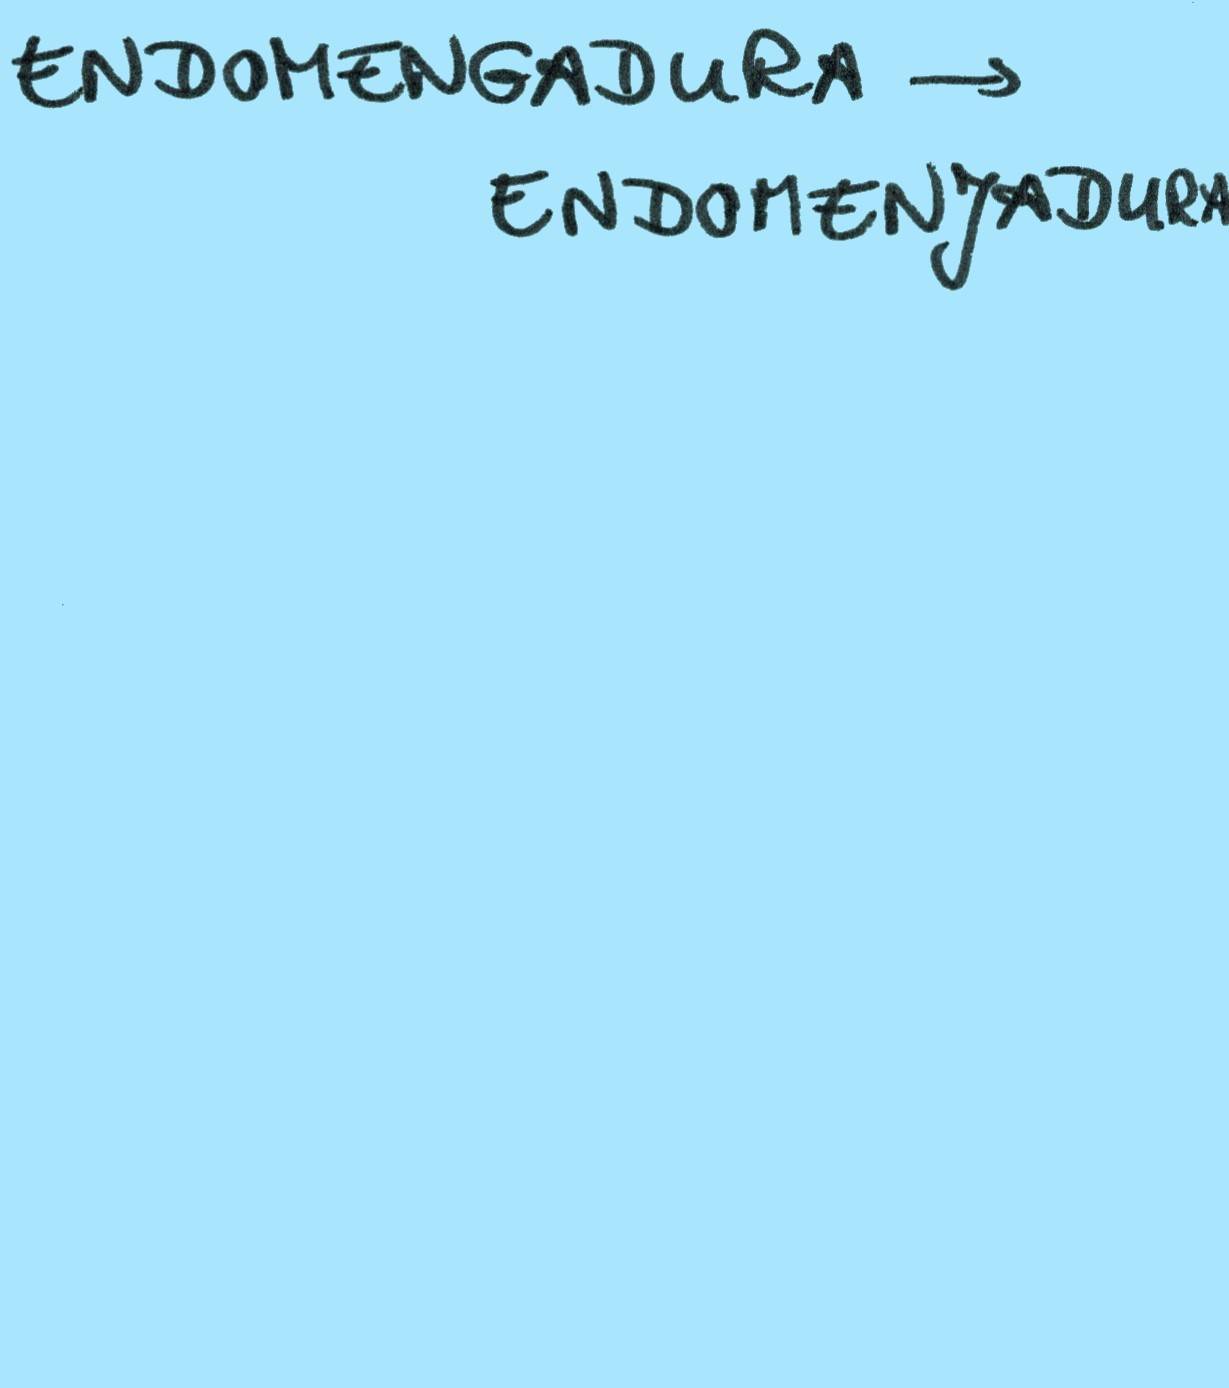 ENDOMENGADURA →
ENDOMENJADURA